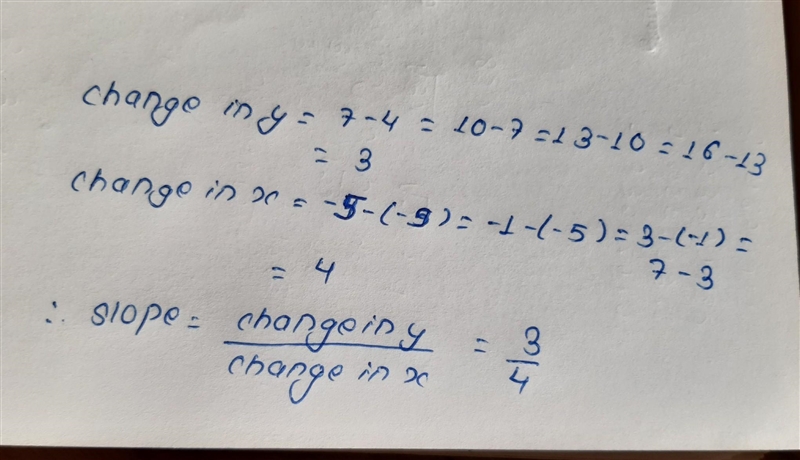 change in y = 7-4 = 10-7 = 13-10 = 16-13
= 3
change in x = -5-(-9) = -1-(-5) = 3-(-1) =
7-3
= 4
∴ slope = change in y / change in x = 3/4